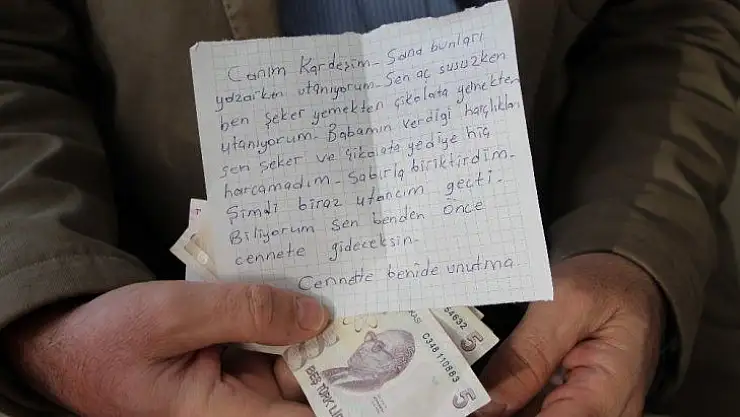 Canım Kardeşim - Sana bunları
yazarken utanıyorum - Sen aç susuzken
ben şeker yemekten çikolata yemekten
utanıyorum - Babamın verdiği harçlıkları
sen şeker ve çikolata yediye hiç
harcamadım - Sabırla biriktirdim -
Şimdi biraz utancım geçti -
Biliyorum sen benden Önce
cennete gideceksin -
Cennette benide unutma.
C348110883
5
BEŞ TÜRK LİRASI
5